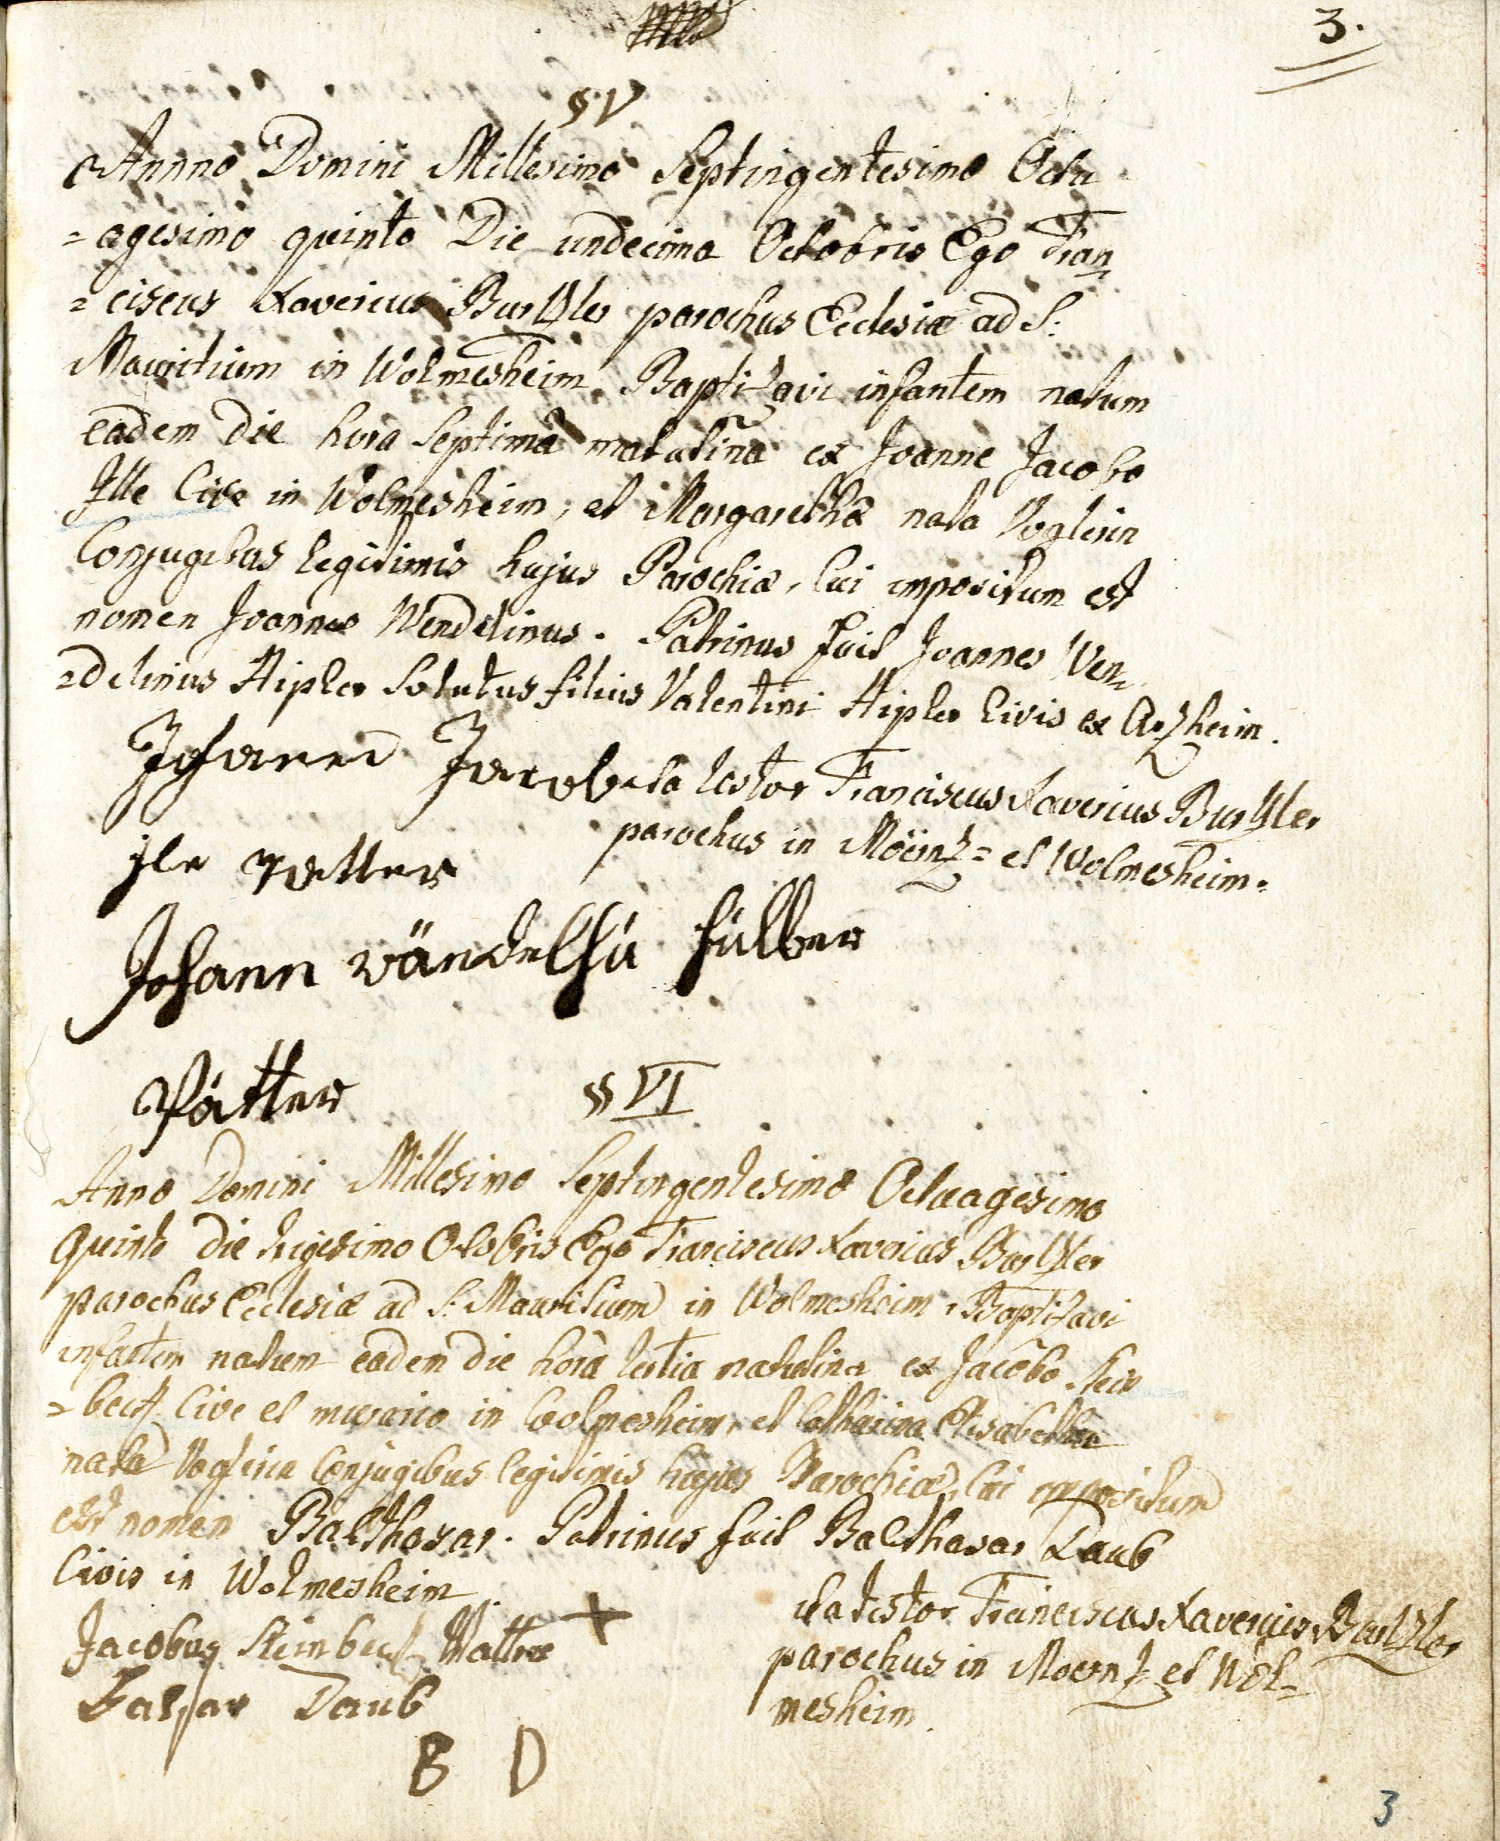 3.
§ V
Annno Domini Millesimo Septingentesimo Octu
=agesimo quinto Die undecima Octobris Ego Fran
=ciscus Xaverius Burtzler parochus Ecclesiæ ad S:
Mauritium in Wolmesheim, Baptizavi infantem natum
eadem die hora Septimâ matutinâ ex Joanne Jacobo
Ille Cive in Wolmesheim, et Margarethâ nata Voglerin
Conjugibus legitimis hujus Parochiæ, Cui impositum est
nomen Joannes Wendelinus. Patrinus fuit Joannes Wen
=delinus Hipler Solutus filius Valentini Hipler Civis ex Arzheim.
Johanes Jacob
ita testor Franciscus Xaverius Burtzler
parochus in Mörz= et Wolmesheim.
ile vatter
Johann
Pätter
§ VI
Anno Domini Millesimo Septingentesimo Octuagesimo
Quinto die trigesimo Octobris Ego Franciscus Xaverius Burtzler
parochus Ecclesiæ ad S: Mauritium in Wolmesheim, Baptizavi
infantem natum eadem die horâ tertia matutina ex Jacobo Stein
=beck Cive et in Wolmesheim, et Catharina Elisabetha
nata Voglerin Conjugibus legitimis hujus Parochiæ, Cui impositum
est nomen Balthasar. Patrinus fuit Balthasar Daub
Civis in Wolmesheim
Jacobus Steinbeck Vatter +
ita testor Franciscus Xaverius Burtzler
parochus in Moerz et Wol=
mesheim.
Balzar Daub
B D
3